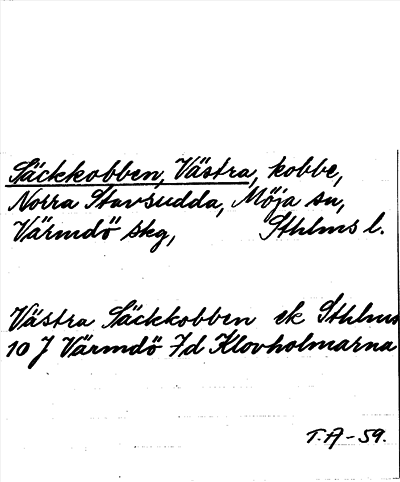 Säckkobben, Västra, kobbe,
Norra Stavsudda, Möja sn,
Värmdö skg, Sthlms l.
Västra Säckkobben ek Sthlms
10 J Värmdö 7d Klovholmarna
T.A-59.